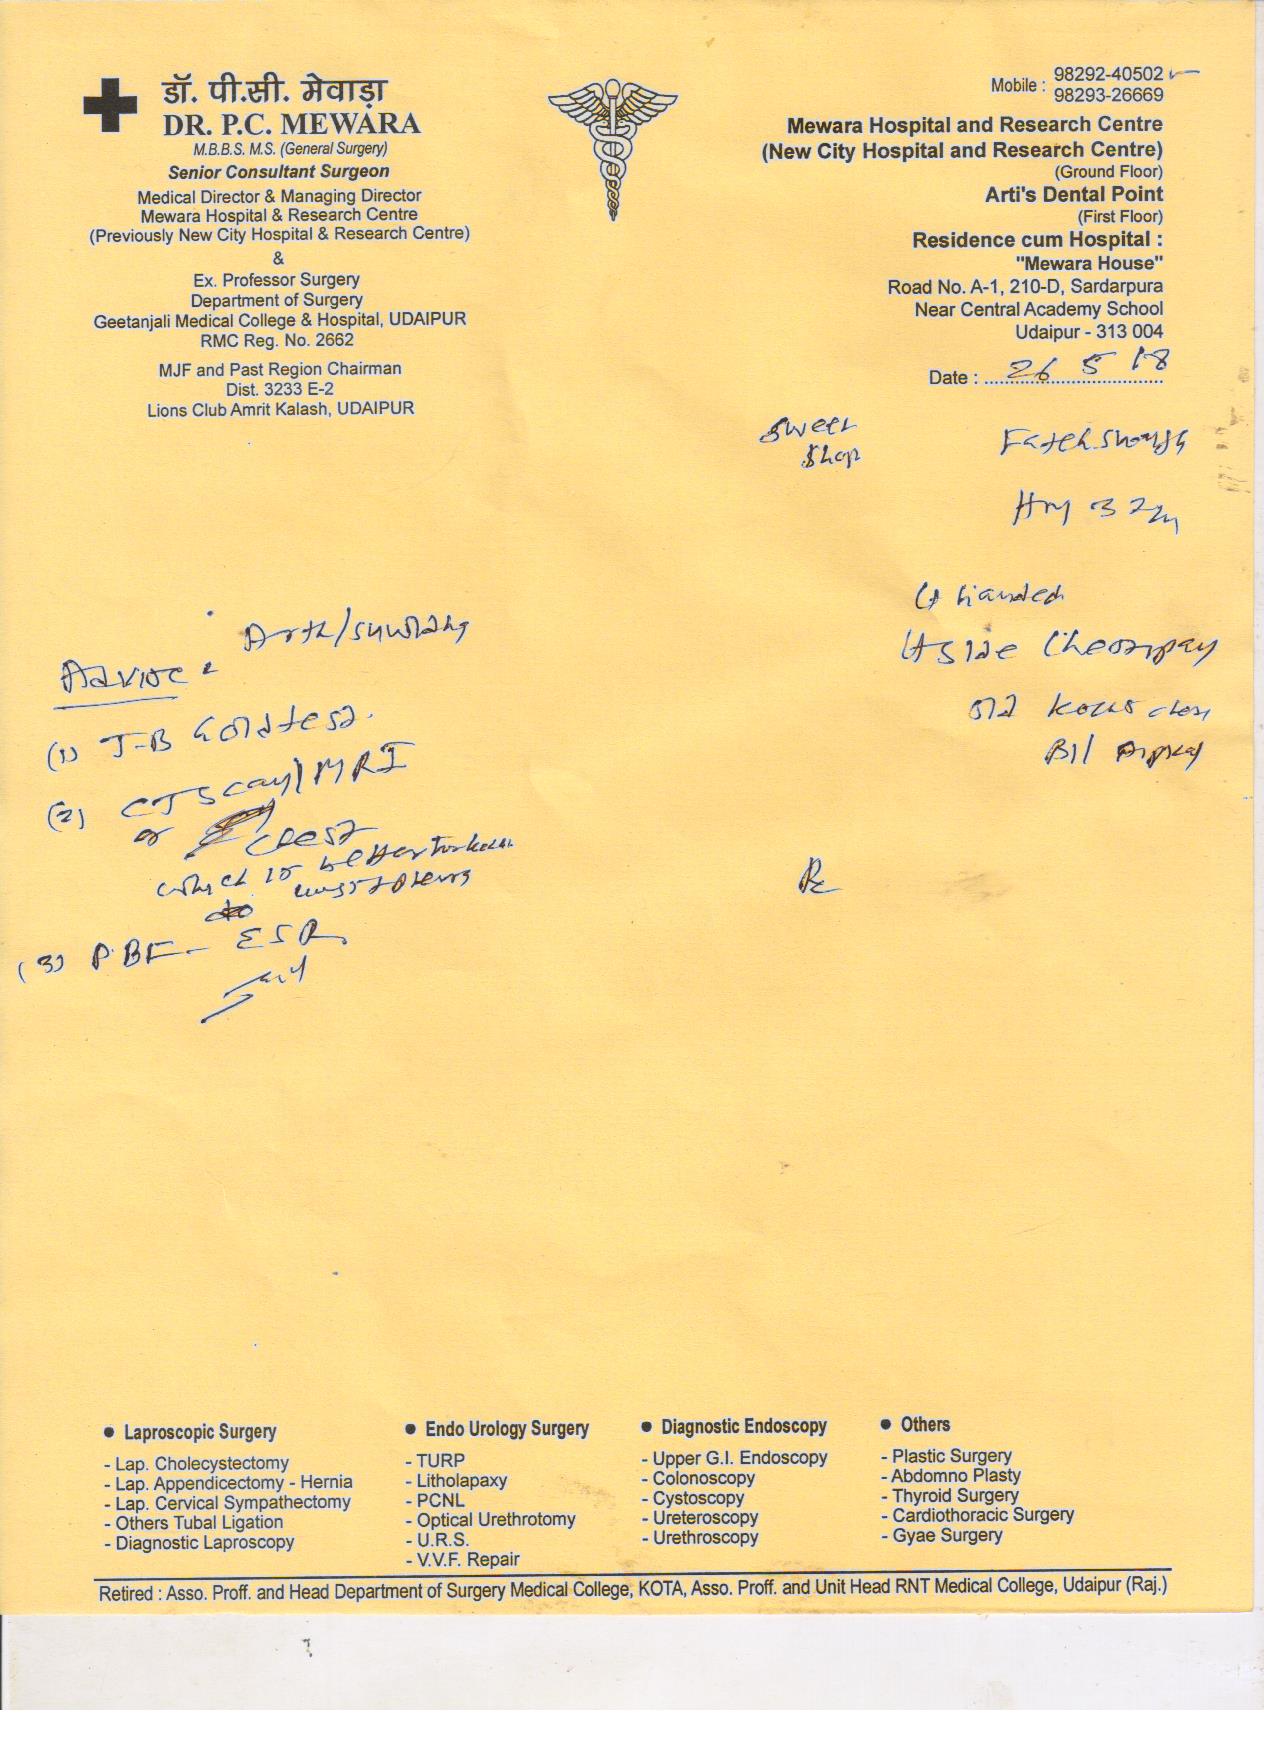 डॉ. पी.सी. मेवाड़ा
DR. P.C. MEWARA
M.B.B.S. M.S. (General Surgery)
Senior Consultant Surgeon
Medical Director & Managing Director
Mewara Hospital & Research Centre
(Previously New City Hospital & Research Centre)
&
Ex. Professor Surgery
Department of Surgery
Geetanjali Medical College & Hospital, UDAIPUR
RMC Reg. No. 2662
MJF and Past Region Chairman
Dist. 3233 E-2
Lions Club Amrit Kalash, UDAIPUR
Mobile : 98292-40502
98293-26669
Mewara Hospital and Research Centre
(New City Hospital and Research Centre)
(Ground Floor)
Arti's Dental Point
(First Floor)
Residence cum Hospital :
"Mewara House"
Road No. A-1, 210-D, Sardarpura
Near Central Academy School
Udaipur - 313 004
Date : 26 5 18
Sweet
Shop
handed
side
old
Advice
(1) T-B Gold test.
(2) CT Scan/MRI
or Chest
which is better
(3) PBF - ESR
Rx
● Laproscopic Surgery
- Lap. Cholecystectomy
- Lap. Appendicectomy - Hernia
- Lap. Cervical Sympathectomy
- Others Tubal Ligation
- Diagnostic Laproscopy
● Endo Urology Surgery
- TURP
- Litholapaxy
- PCNL
- Optical Urethrotomy
- U.R.S.
- V.V.F. Repair
● Diagnostic Endoscopy
- Upper G.I. Endoscopy
- Colonoscopy
- Cystoscopy
- Ureteroscopy
- Urethroscopy
● Others
- Plastic Surgery
- Abdomno Plasty
- Thyroid Surgery
- Cardiothoracic Surgery
- Gyae Surgery
Retired : Asso. Proff. and Head Department of Surgery Medical College, KOTA, Asso. Proff. and Unit Head RNT Medical College, Udaipur (Raj.)